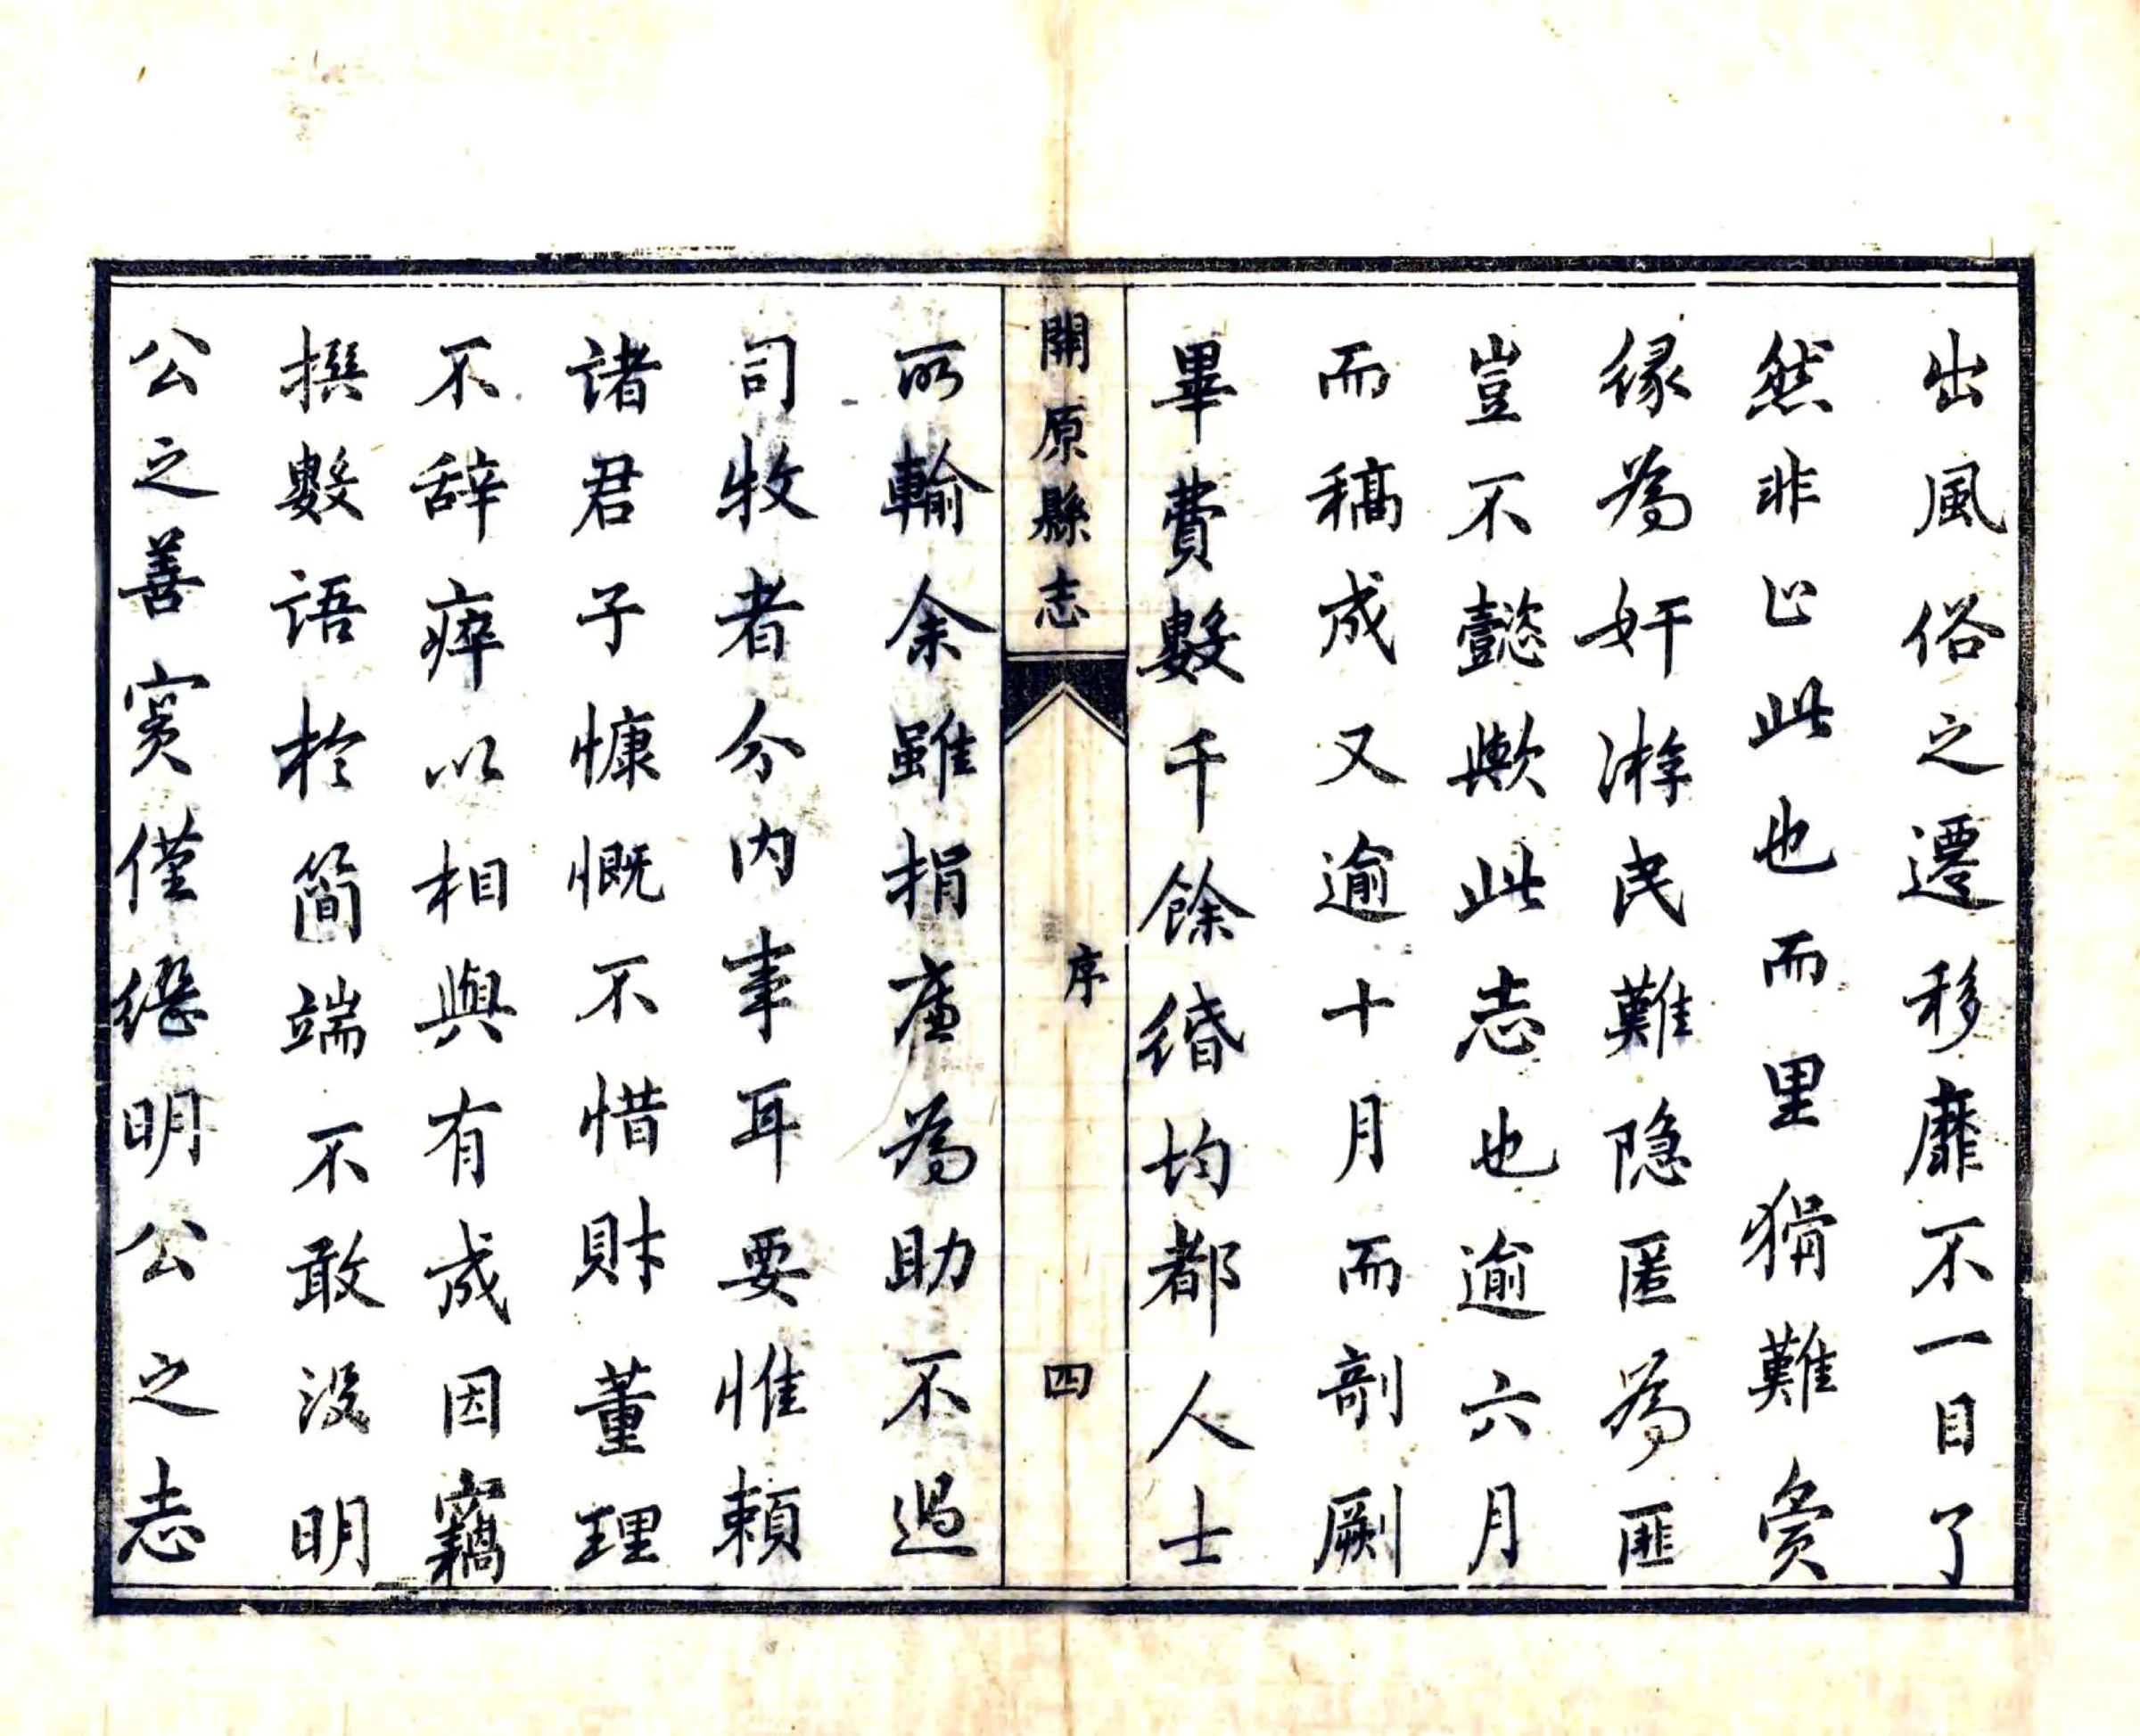 出風俗之遷移靡不一目了
然非止此也而里猾難夤
緣為奸游民難隱匿為匪
豈不懿歟此志也逾六月
而稿成又逾十月而剞劂
畢費數千餘緡均都人士
開原縣志
序
四
所輸余雖捐廉為助不過
司牧者分內事耳要惟賴
諸君子慷慨不惜財董理
不辞瘁以相與有成因竊
撰數語於簡端不敢沒明
公之善實僅繼明公之志